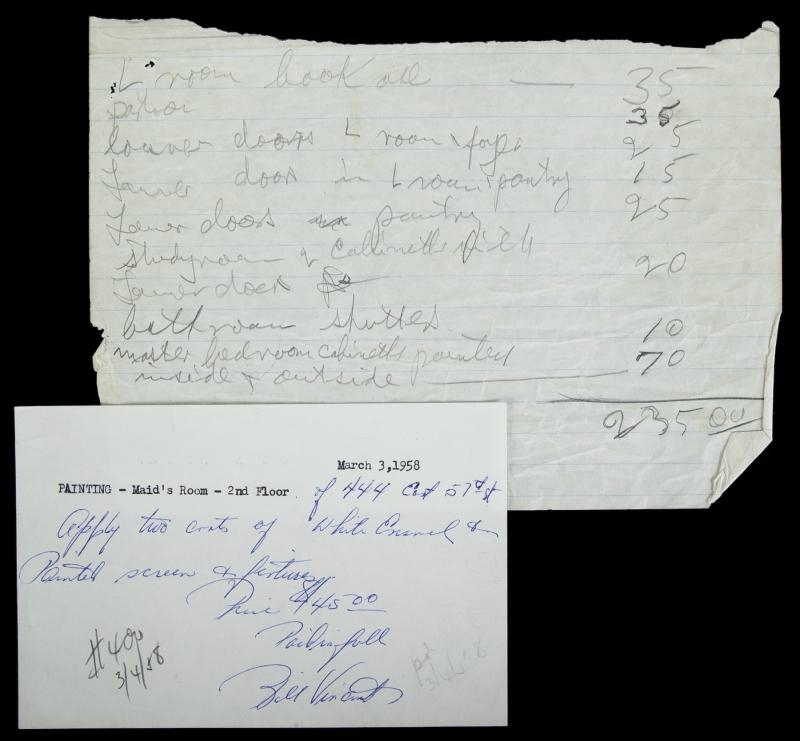 L room book all — 35
patior 35
louver doors L room & foyer 25
Louver door in L room & pantry 15
Louver doors pantry 25
studyroom & Cabinetts
Louver doors 20
bathroom shutters 10
master bedroom cabinetts painted 70
inside & outside —
235.00
March 3,1958
PAINTING - Maid's Room - 2nd Floor of 444 East 57th st
Apply two coats of White Enamel &
Painted screen & fixtures
Price $45.00
Paid in full
Bill Vincent
#400
3/4/58
pd
3/4/58